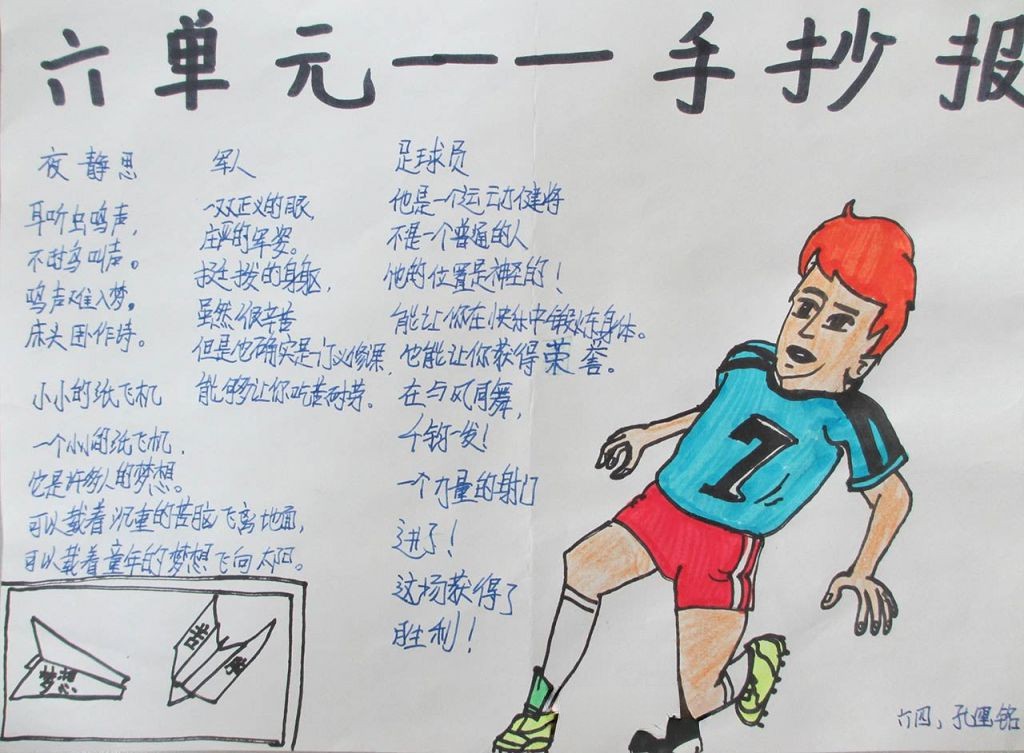 六单元——手抄报
夜静思
耳听虫鸣声，
不时鸟叫声。
鸣声难入梦。
床头卧作诗。
小小的纸飞机
一个小小的纸飞机，
它是许多人的梦想。
可以载着沉重的苦脑飞离地面，
可以载着童年的梦想飞向太阳。
梦想
军人
一双正义的眼，
庄严的军姿。
挺拨的身躯，
虽然很辛苦
但是也确实是门必修课，
能够让你吃苦耐劳。
足球员
他是一个运动健将
不是一个普通的人
他的位置是神经的！
能让你在快乐中锻炼身体。
也能让你获得荣誉。
在与风同舞，
千钧一发！
一个力量的射门
进了！
这场获得了
胜利！
7
六四，孔